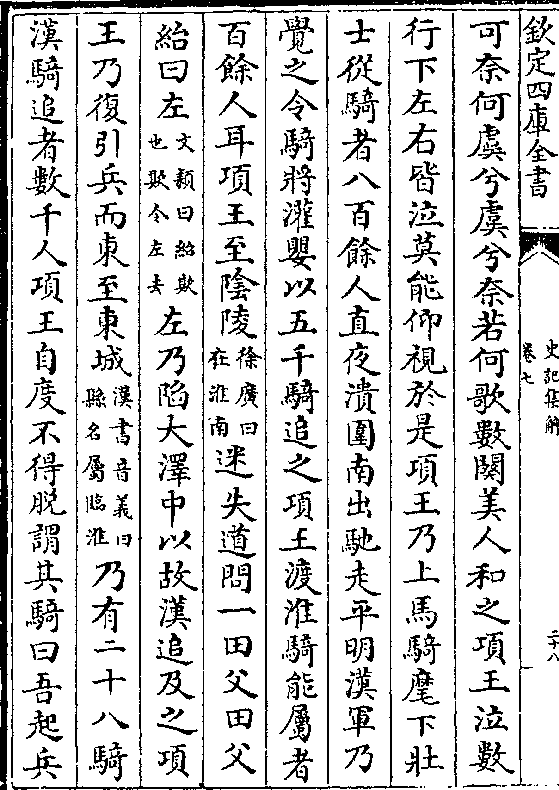 欽定四庫全書
史記集解
卷七
二十八
可奈何虞兮虞兮奈若何歌數闋美人和之項王泣數
行下左右皆泣莫能仰視於是項王乃上馬騎麾下壯
士從騎者八百餘人直夜潰圍南出馳走平明漢軍乃
覺之令騎將灌嬰以五千騎追之項王渡淮騎能屬者
百餘人耳項王至陰陵徐廣曰在淮南迷失道問一田父田父
紿曰左文穎曰紿欺也欺令左去左乃陷大澤中以故漢追及之項
王乃復引兵而東至東城漢書音義曰縣名屬臨淮乃有二十八騎
漢騎追者數千人項王自度不得脫謂其騎曰吾起兵